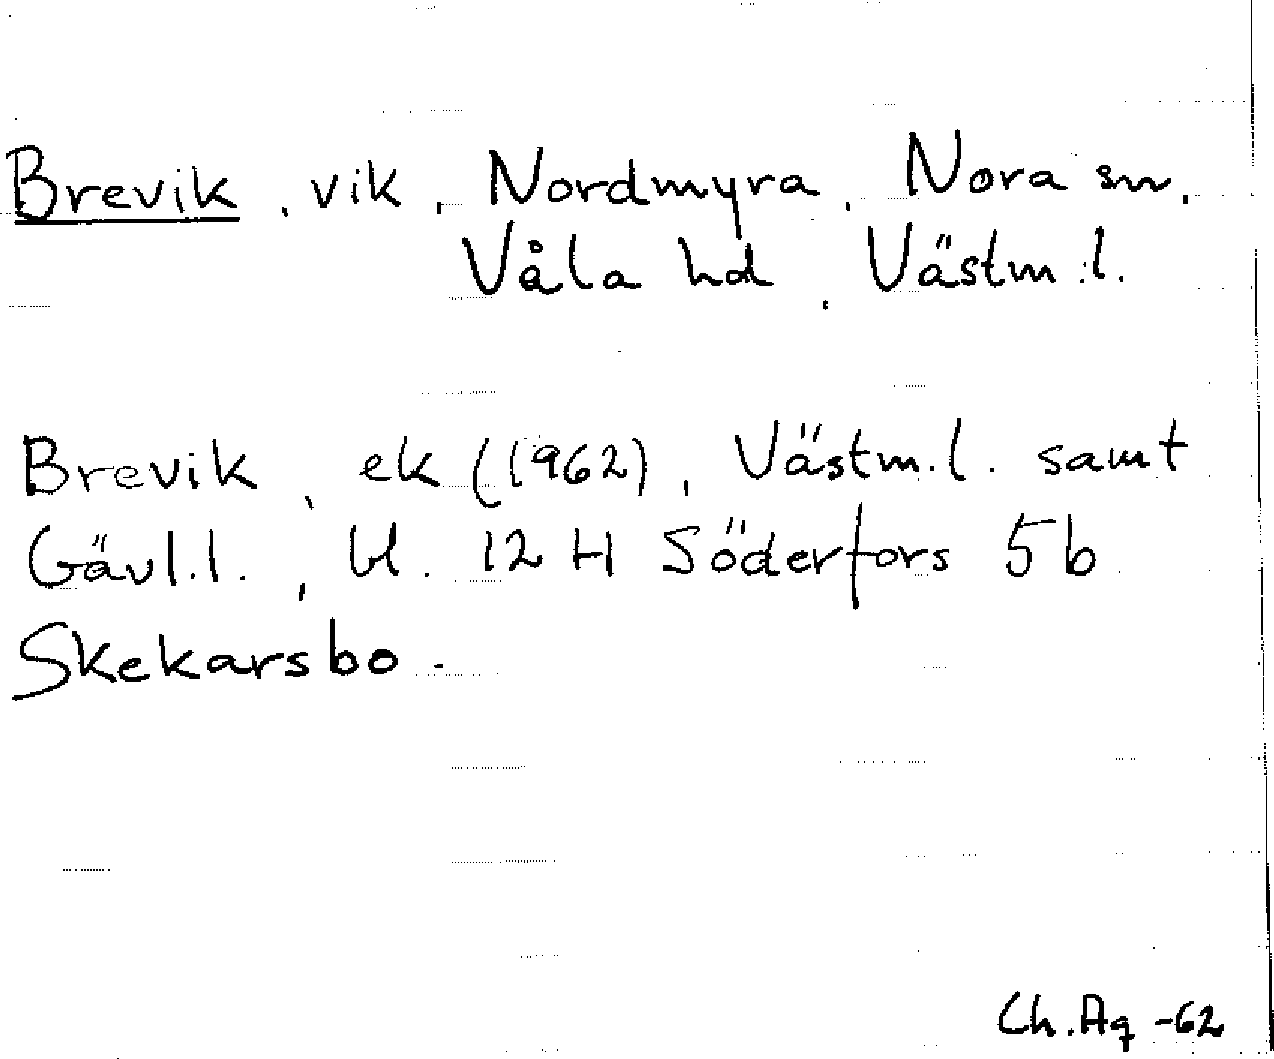 Brevik, vik, Nordmyra, Nora sn,
Våla hd, Västm.l.
Brevik, ek (1962), Västm.l. samt
Gävl.l., bl. 12 H Söderfors 5b
Skekarsbo.
Ch.Aq -62